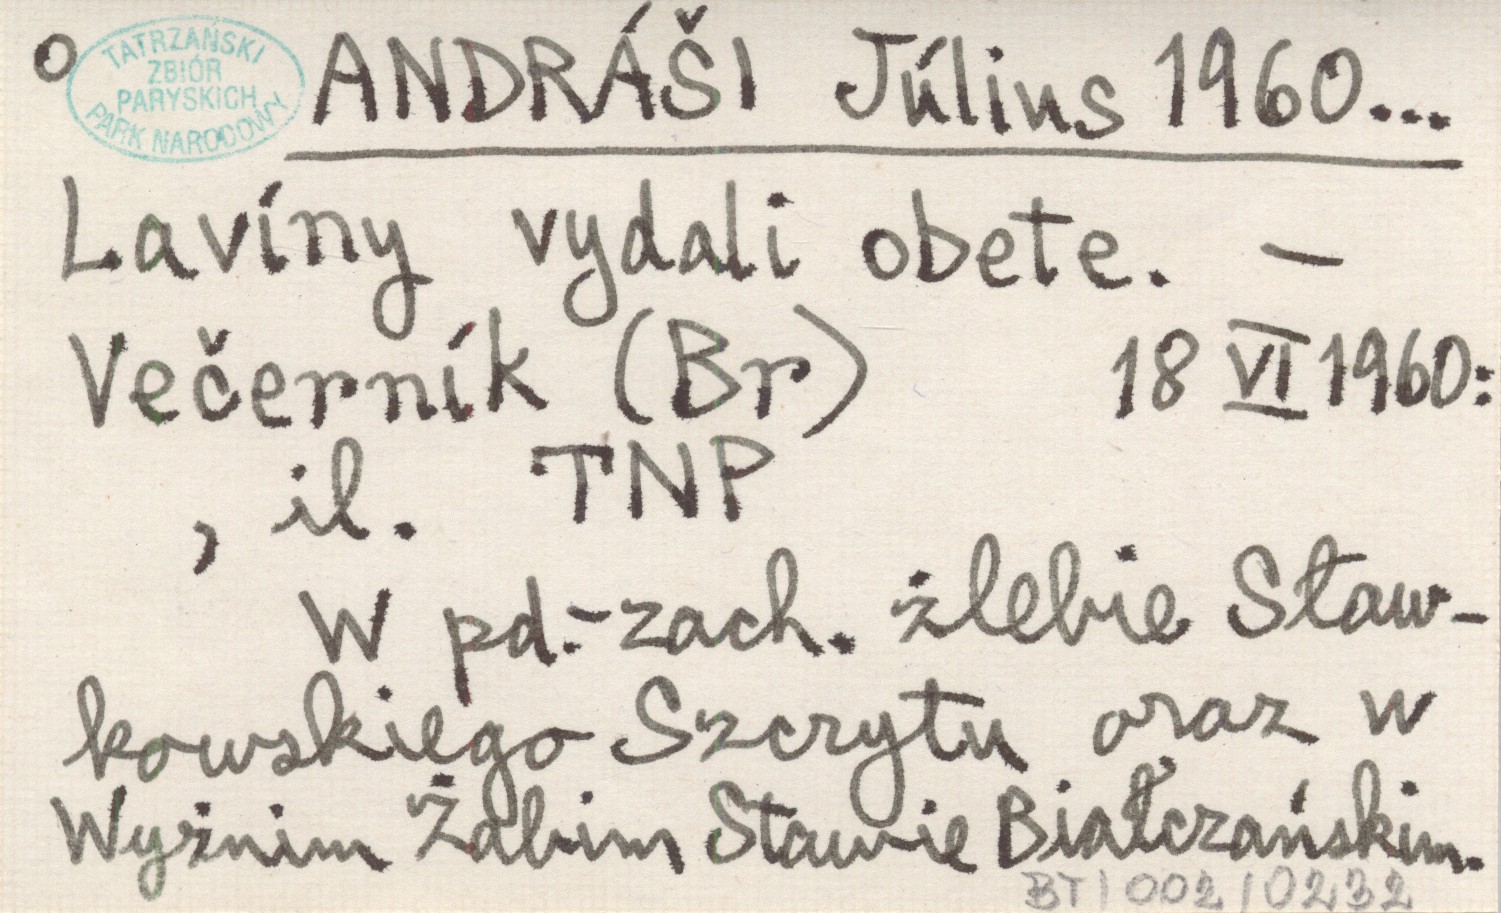 o
TATRZAŃSKI
ZBIÓR
PARYSKICH
PARK NARODOWY
ANDRÁŠI Július 1960...
Lavíny vydali obete. —
Večerník (Br) 18 VI 1960:
, il. TNP
W pd.-zach. żlebie Staw-
kowskiego Szczytu oraz w
Wyżnim Żabim Stawie Białczańskim.
BT/002/0232